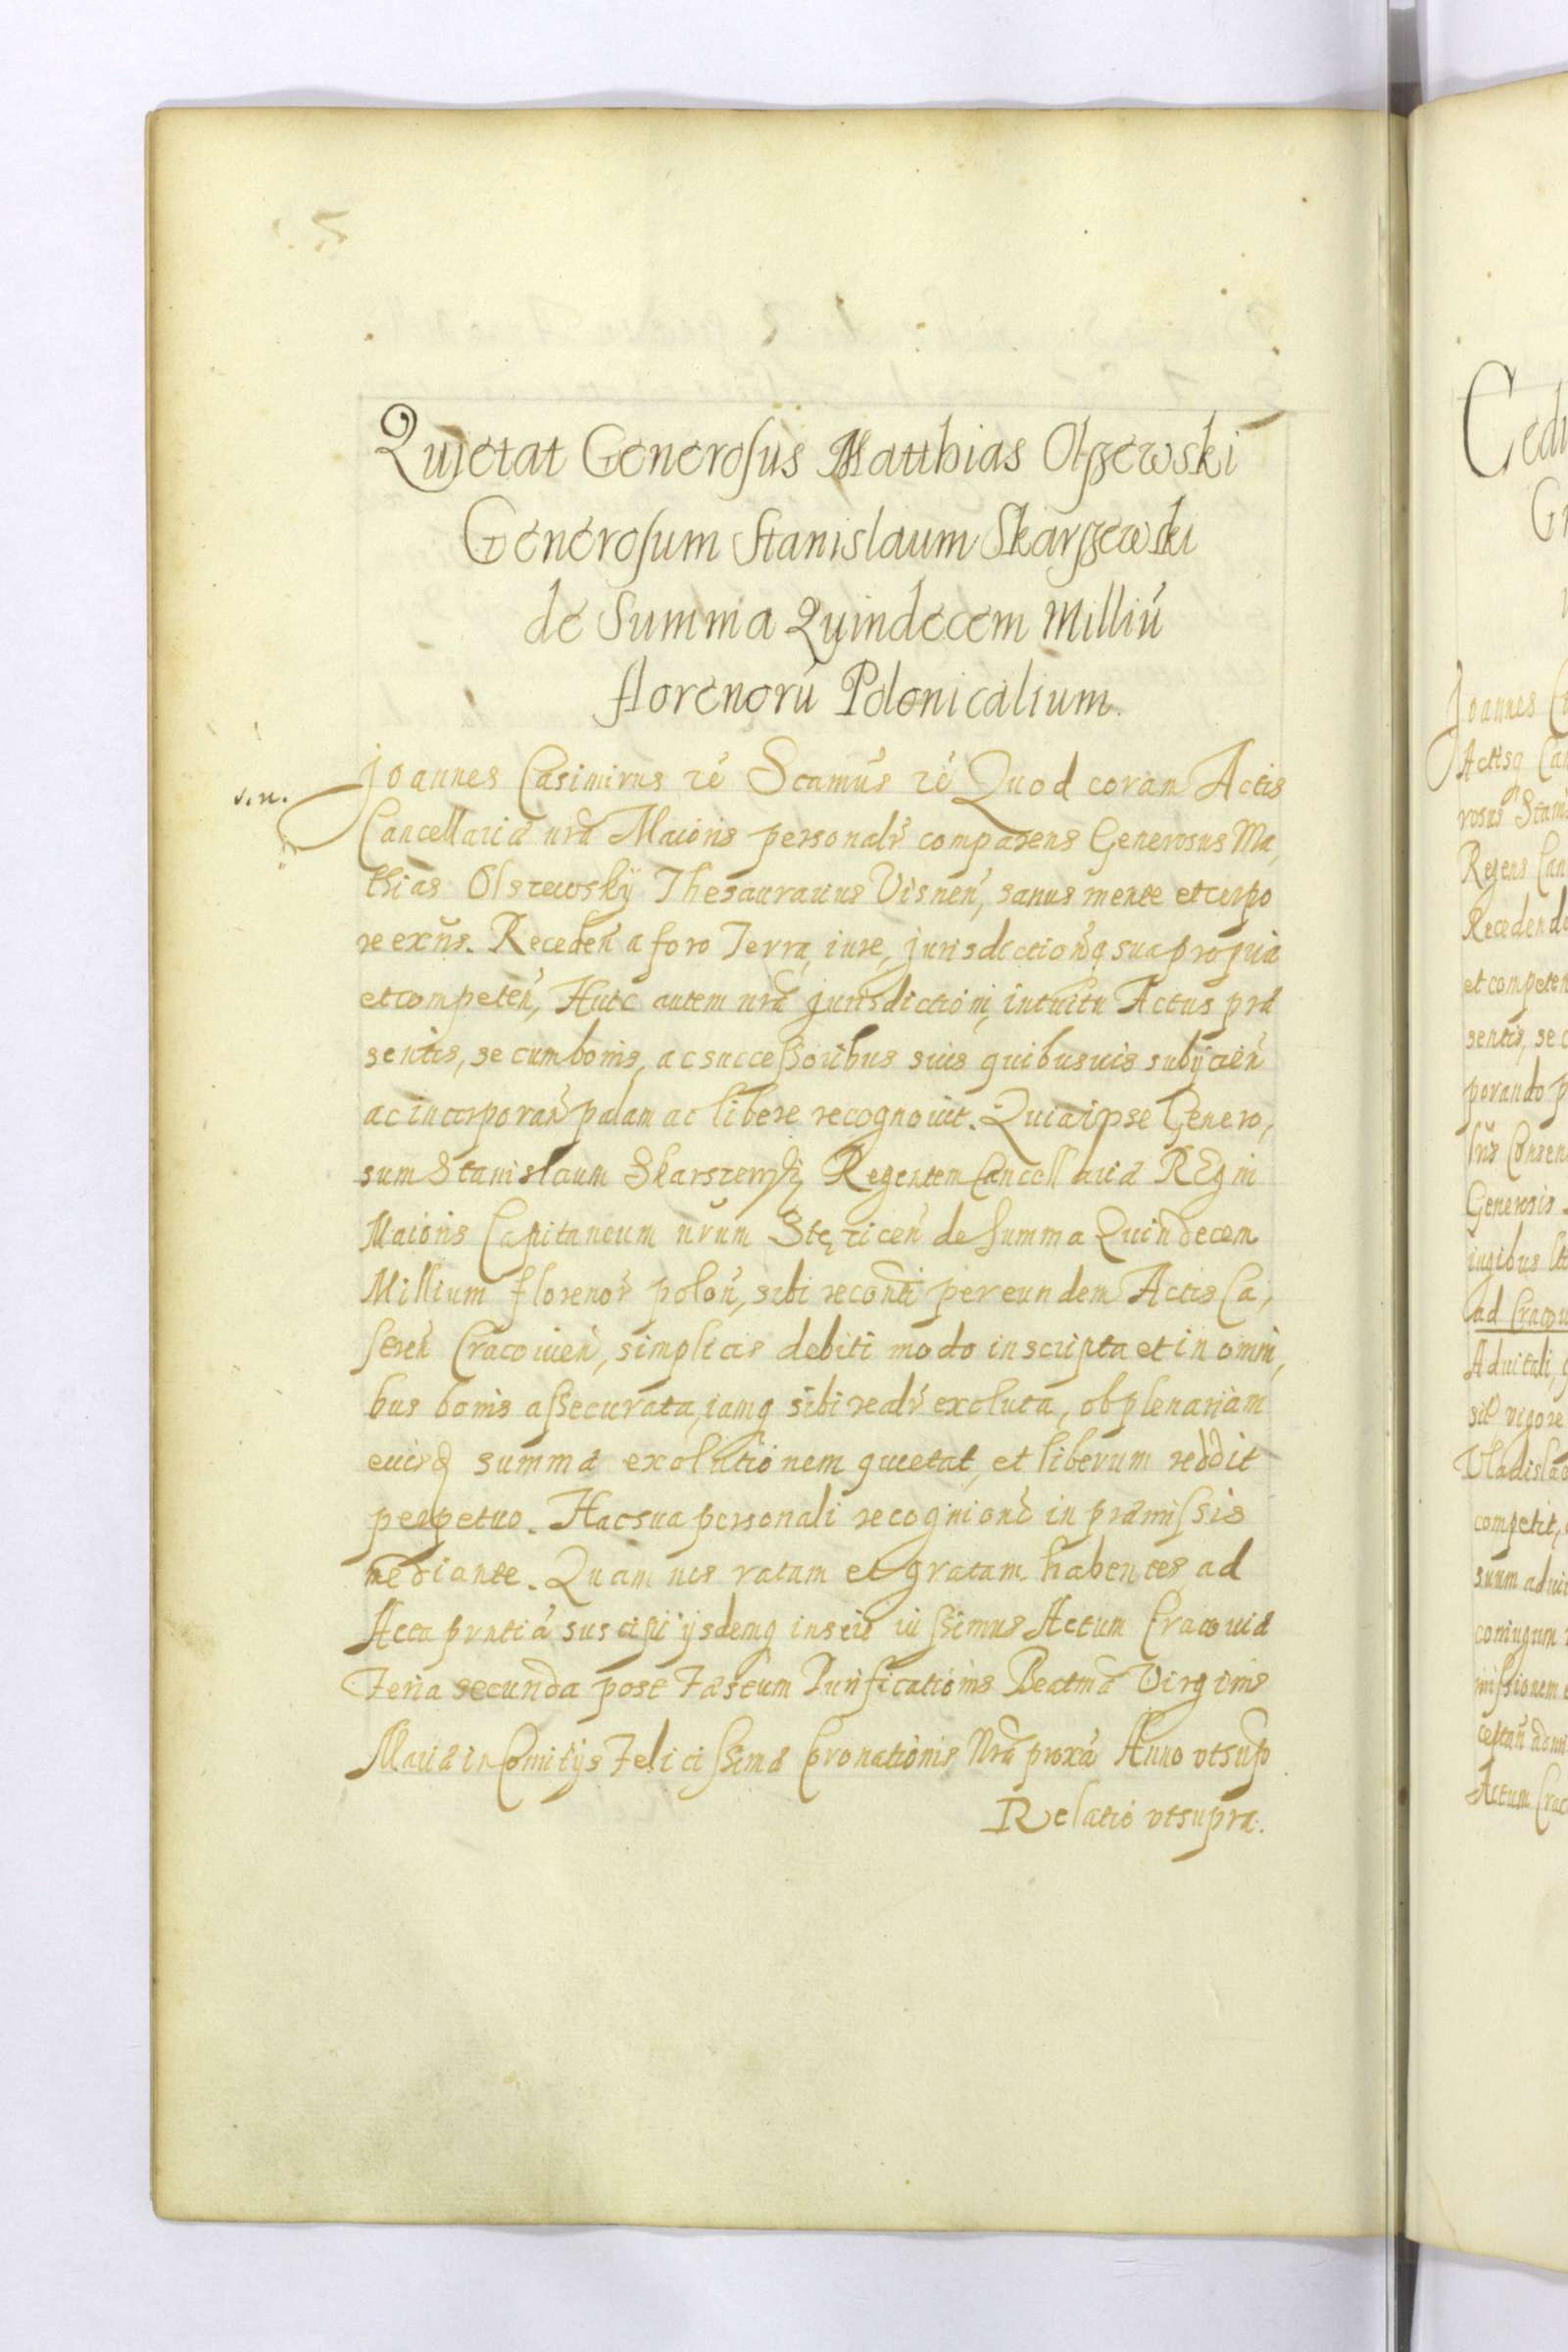 Quietat Generosus Matthias Olszewski
Generosum Stanislaum Skarszewski
de Summa Quindecem Milliū
florenorū Polonicalium.
v. n.
Joannes Casimirus rē Scamūs rē Quod coram Actis
Cancellariæ nræ Maioris personalr̄ comparens Generosus Ma,
thias Olszewsky Thesaurarius Visnen̄, sanus mente et corpo
re exn̄s. Receden̄ a foro Terra, iure, jurisdictionq̨ sua propria
et competen̄, Huic autem nræ jurisdictioni, intuitu Actus præ
sentis, se cum bonis, ac successoribus suis quibusuis subijcien̄
ac incorporan̄ palam ac libere recognouit. Quia ipse Genero,
sum Stanislaum Skarszewski Regentem Cancellariæ Regni
Maioris Capitaneum nrūm Stęzicen̄ de summa Quindecem
Millium florenor̄ polon̄, sibi recōnti per eundem Actis Ca,
stren̄ Cracouien̄, simplicis debiti modo inscripta et in omni,
bus bonis assecurata, iamq̨ sibi realr̄ exoluta, ob plenariam
euisd̨ summæ exolutionem quietat, et liberum reddit
perpetuo. Hac sua personali recognione in præmissis
mediante. Quam nos ratam et gratam habentes, ad
Acta prntia suscipi ijsdemq̨ inseri iussimus Actum Cracouiæ
Feria secunda post Fæstum Purificationis Beatmæ Virginis
Mariæ in Comitijs Felicissimæ Coronationis Nræ proxa Anno vt sup
Relatio vt supra.
Joannes
Actisq̨
rosus
Regens
Recedendo
et competen
sentis, se
porando
Generosis
ad
Aduitali,
vigore
Vladislao
competit,
suum
coniugum
missionem
Actum